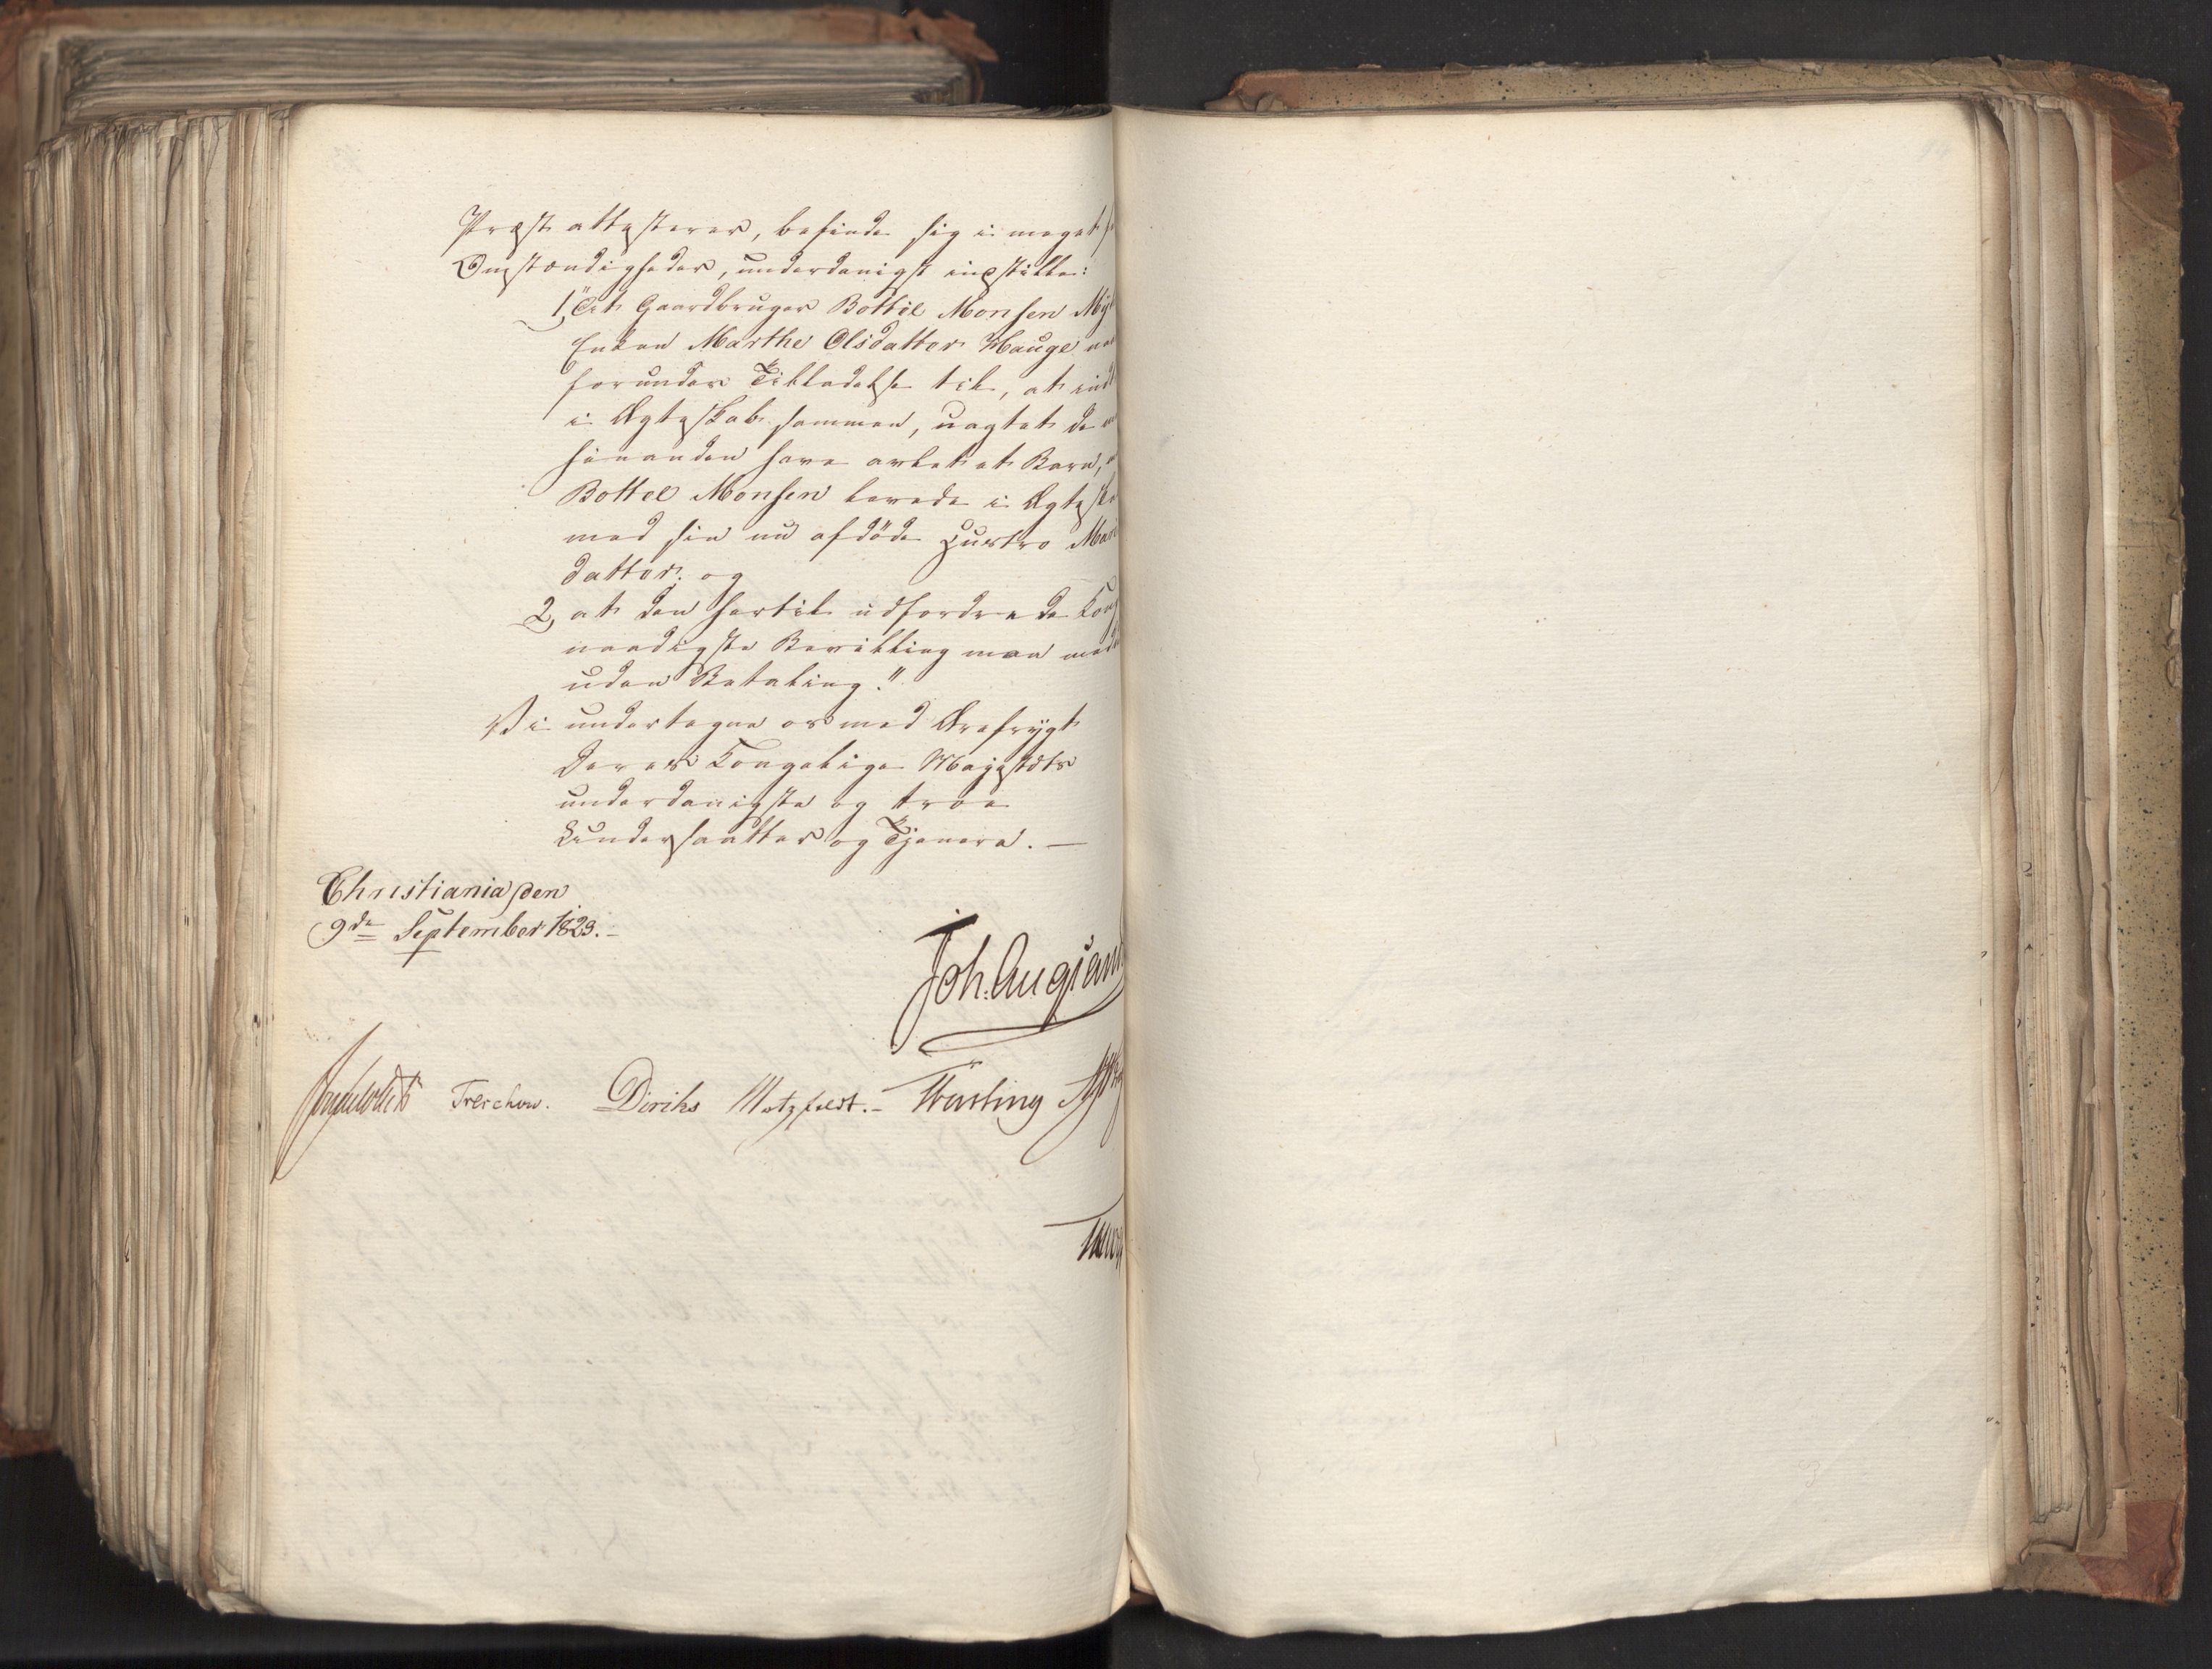 Præst attesterer, befinde sig i meget
Omstændigheder, underdanigst indstille:
1, "At Gaardbruger Bottel Monsen
Enken Marthe Olsdatter Hauge
forundes Tilladelse til, at
i Ægteskab sammen, uagtet de
hinanden have avlet et Barn,
Bottel Monsen levede i
med sin nu afdöde Hustro
datter; og
2, at den hertil udfordrende
naadigste Bevilling maa
uden Betaling."
Vi undertegne os med Ærefrygt
Deres Kongelige Majestæts
underdanigste og troe
Undersaatter og Tjenere. —
Christiania den
9de September 1823. -
Joh. Aug. Sand
Treschow. Diriks Motzfeldt. -